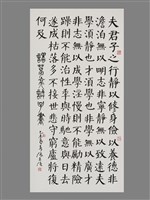 夫君子之行靜以修身儉以養德非
澹泊無以明志非寧靜無以致遠夫
學須靜也才須學也非學無以廣才
非志無以成學淫慢則不能勵精險
躁則不能治性年與時馳意與日去
遂成枯落多不接世悲守窮廬將復
何及